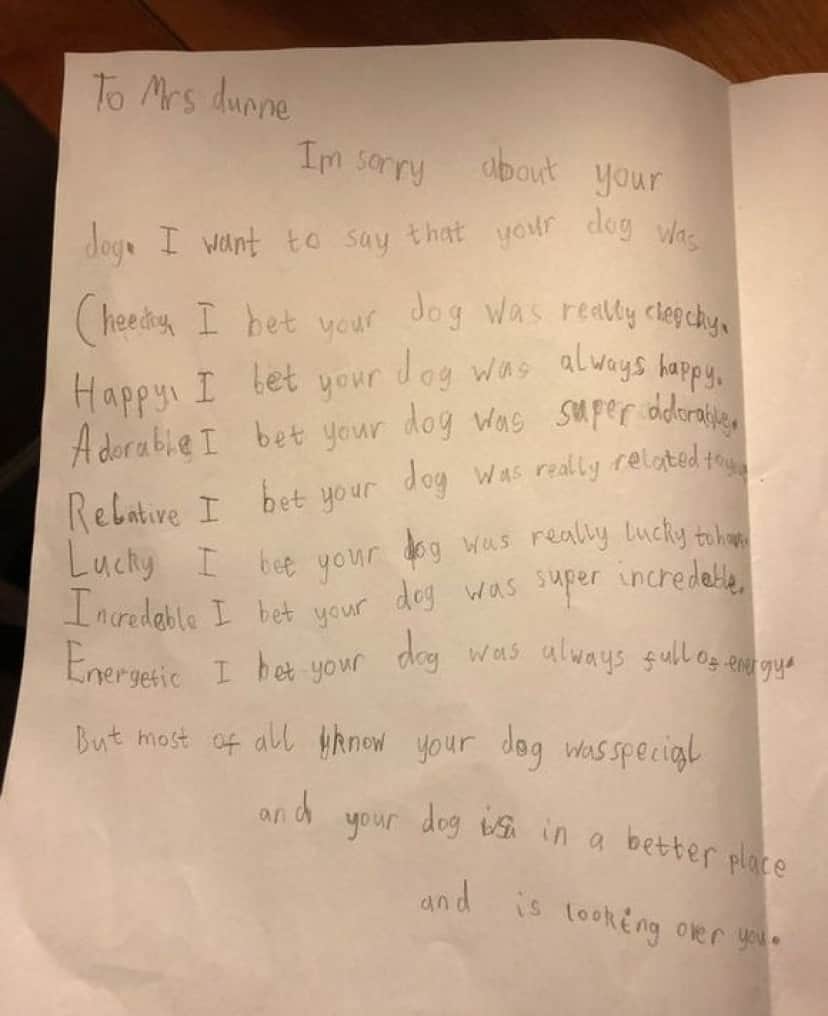 To Mrs dunne
Im sorry about your
dog. I want to say that your dog was
Cheecky I bet your dog was really cheecky.
Happy, I bet your dog was always happy.
Adorable I bet your dog was super adorable.
Relative I bet your dog was really related to you
Lucky I bet your dog was really lucky to have
Incredeble I bet your dog was super incredeble.
Energetic I bet your dog was always full of energy.
But most of all I know your dog was special
and your dog is in a better place
and is looking over you.